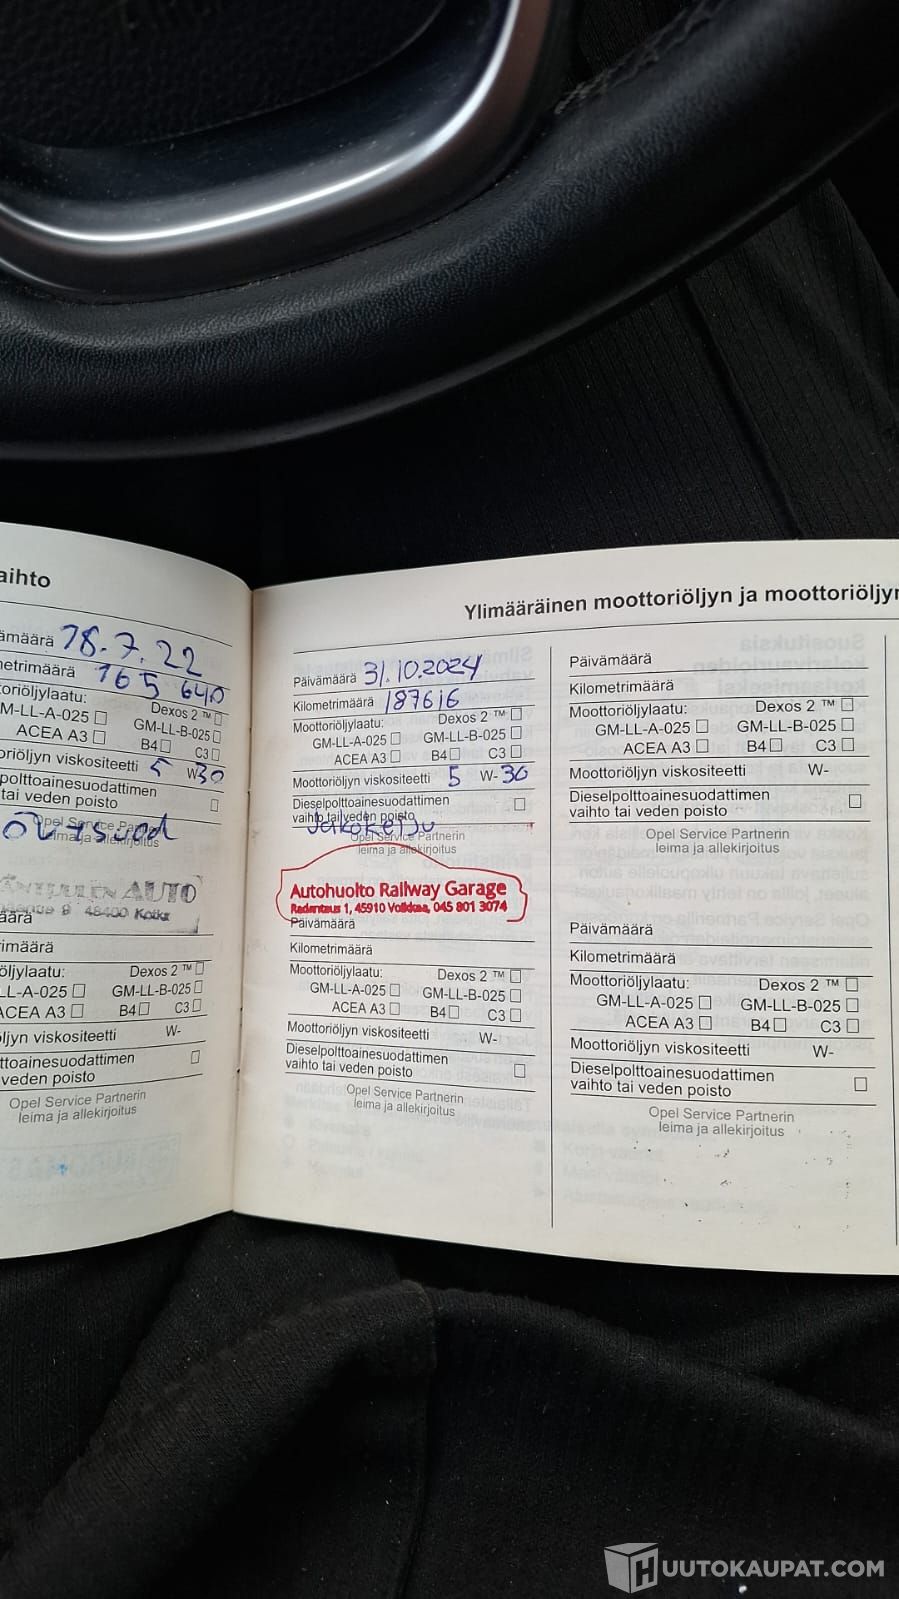 aihto
ämäärä 18.7.22
metrimäärä 165 640
toriöljylaatu: Dexos 2 ™
M-LL-A-025 GM-LL-B-025
ACEA A3 B4 C3
oriöljyn viskositeetti 5 W30
polttoainesuodattimen
tai veden poisto
Opel Service Partnerin
leima ja allekirjoitus
AUTO
9 48400 Kotka
äärä
imäärä
öljylaatu: Dexos 2 ™
LL-A-025 GM-LL-B-025
ACEA A3 B4 C3
ljyn viskositeetti W-
ttoainesuodattimen
veden poisto
Opel Service Partnerin
leima ja allekirjoitus
Ylimääräinen moottoriöljyn ja moottoriöljyn
Päivämäärä 31.10.2024
Kilometrimäärä 187616
Moottoriöljylaatu: Dexos 2 ™
GM-LL-A-025 GM-LL-B-025
ACEA A3 B4 C3
Moottoriöljyn viskositeetti 5 W-30
Dieselpolttoainesuodattimen
vaihto tai veden poisto
Jakoketju
Opel Service Partnerin
leima ja allekirjoitus
Autohuolto Railway Garage
Radantaus 1, 45910 Voikkaa, 045 801 3074
Päivämäärä
Kilometrimäärä
Moottoriöljylaatu: Dexos 2 ™
GM-LL-A-025 GM-LL-B-025
ACEA A3 B4 C3
Moottoriöljyn viskositeetti W-
Dieselpolttoainesuodattimen
vaihto tai veden poisto
Opel Service Partnerin
leima ja allekirjoitus
Päivämäärä
Kilometrimäärä
Moottoriöljylaatu: Dexos 2 ™
GM-LL-A-025 GM-LL-B-025
ACEA A3 B4 C3
Moottoriöljyn viskositeetti W-
Dieselpolttoainesuodattimen
vaihto tai veden poisto
Opel Service Partnerin
leima ja allekirjoitus
Päivämäärä
Kilometrimäärä
Moottoriöljylaatu: Dexos 2 ™
GM-LL-A-025 GM-LL-B-025
ACEA A3 B4 C3
Moottoriöljyn viskositeetti W-
Dieselpolttoainesuodattimen
vaihto tai veden poisto
Opel Service Partnerin
leima ja allekirjoitus
HUUTOKAUPAT.COM